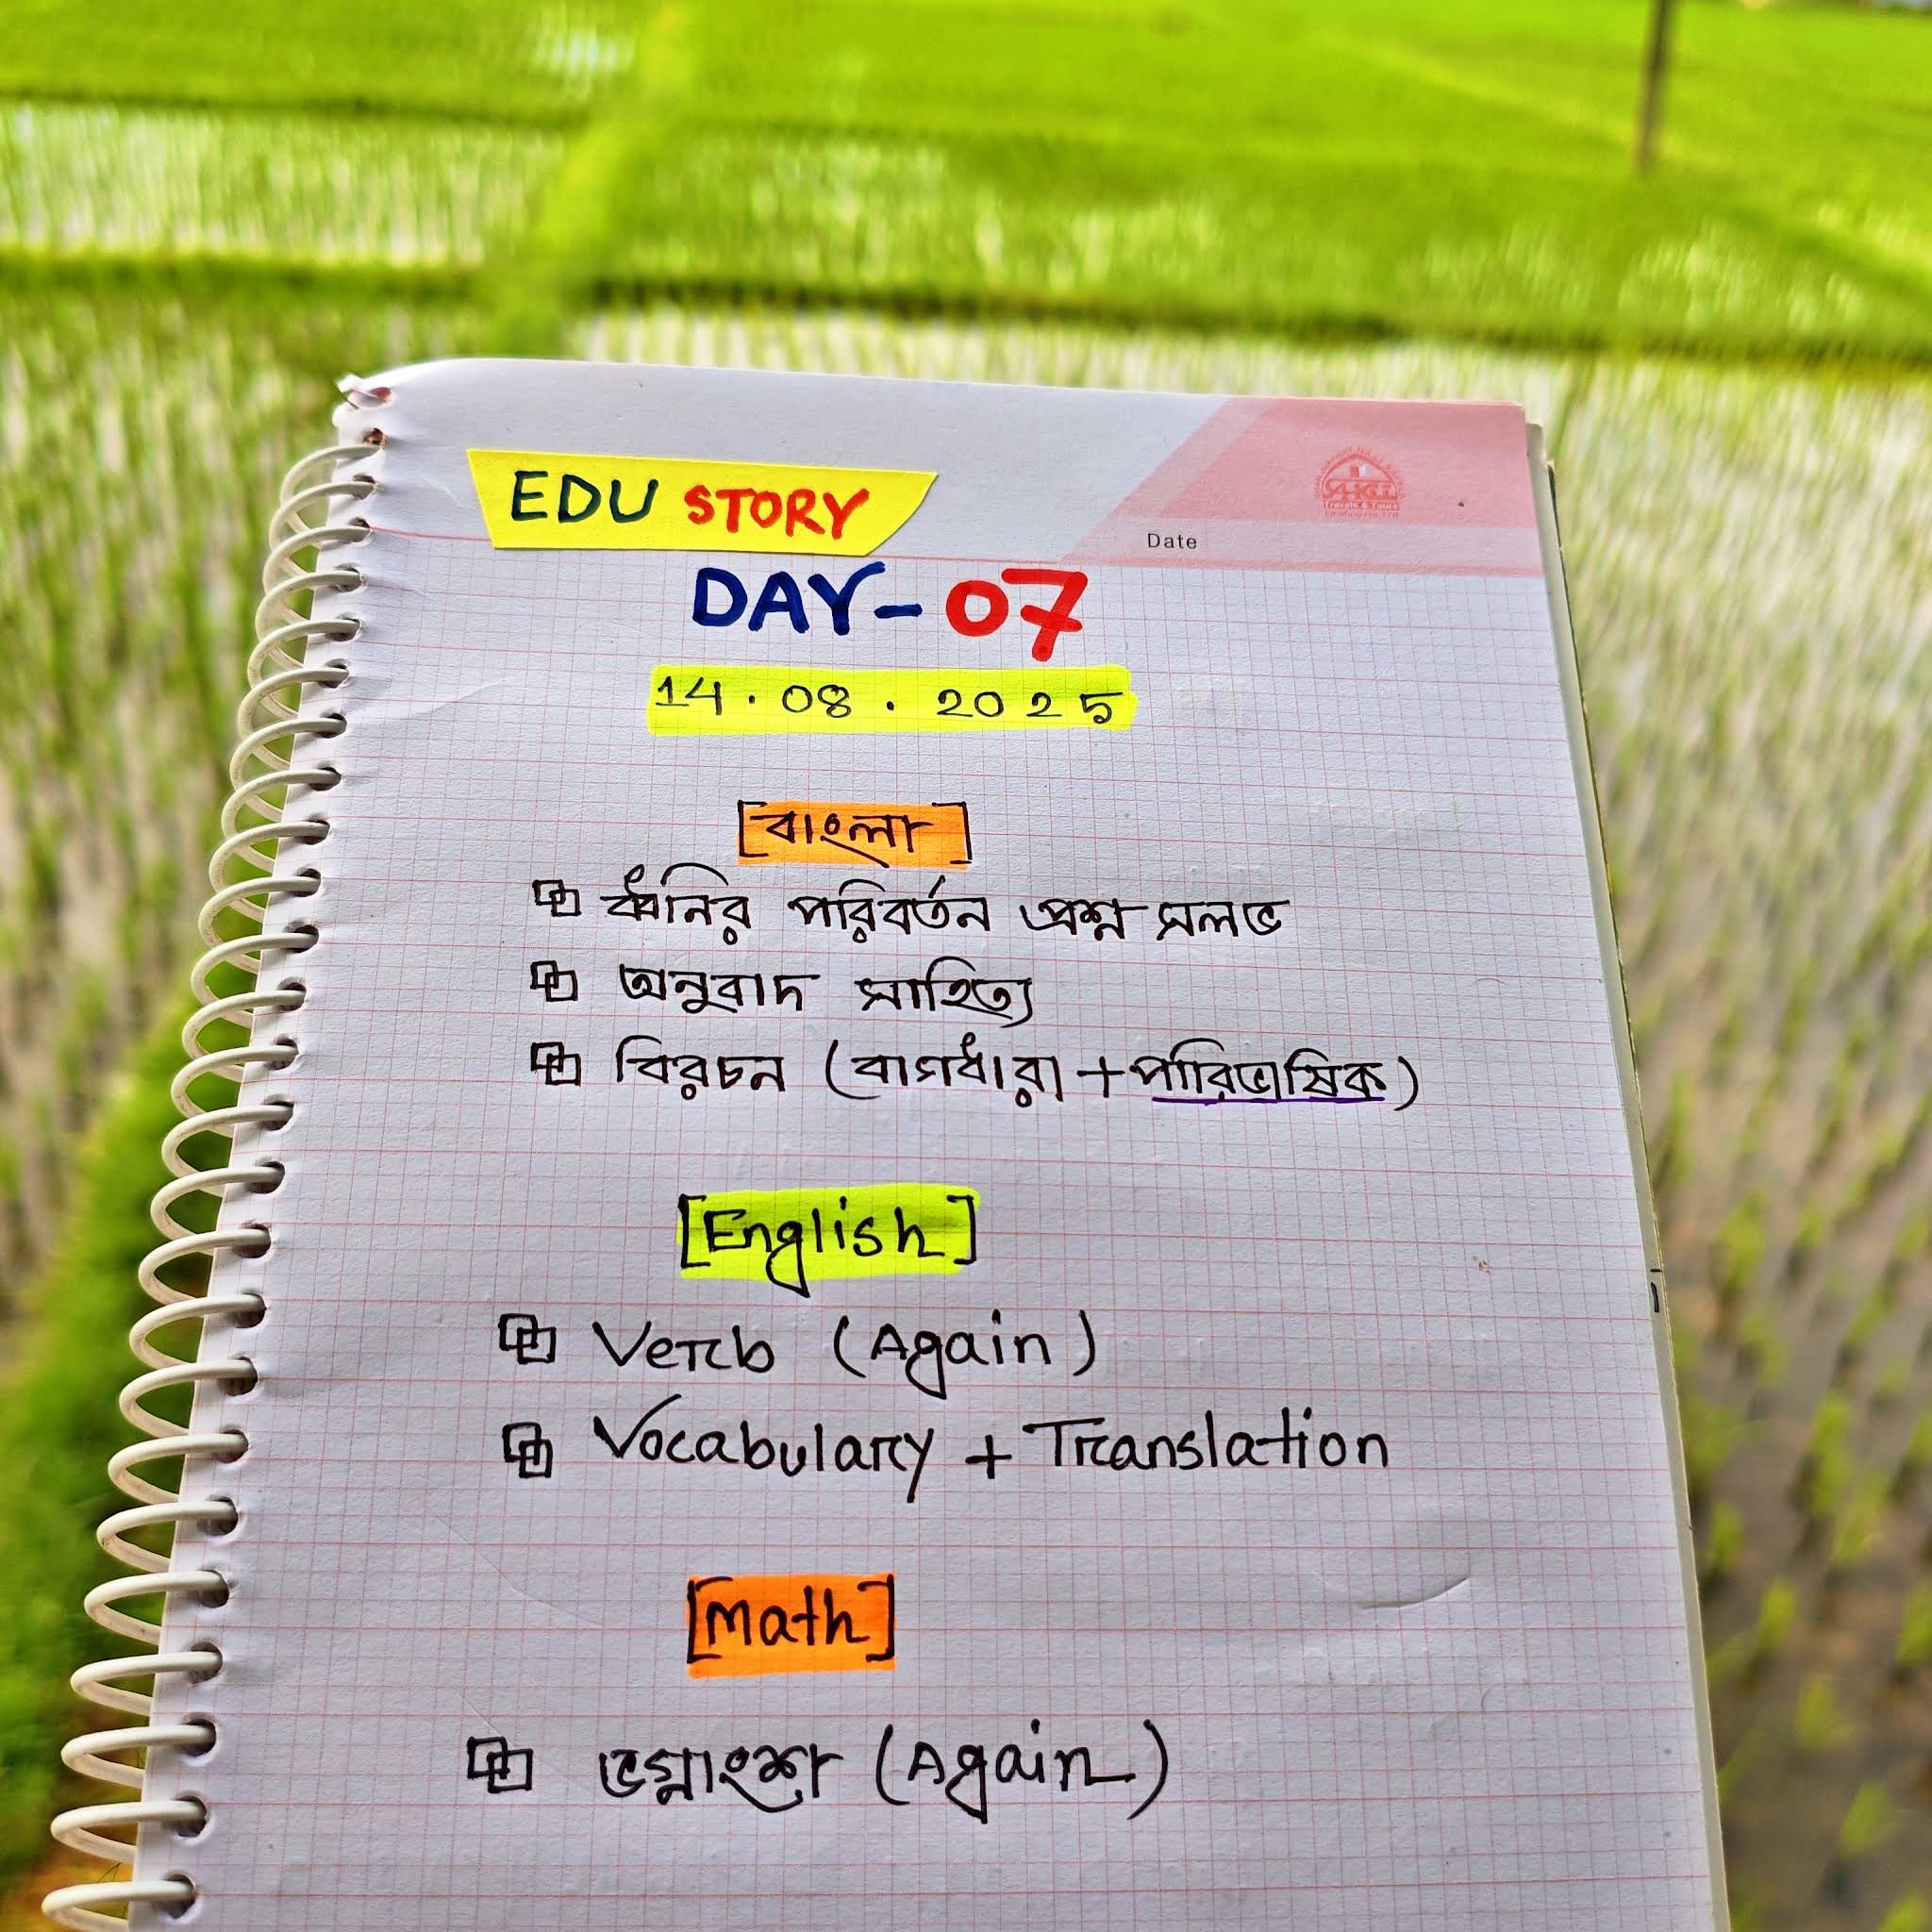 EDU STORY
Travels & Tours
Date
DAY-07
14.08.2025
[বাংলা]
ধ্বনির পরিবর্তন প্রশ্ন সলভ
অনুবাদ সাহিত্য
বিরচন (বাগধারা+পারিভাষিক)
[English]
Verb (Again)
Vocabulary + Translation
[Math]
ভগ্নাংশ (Again)